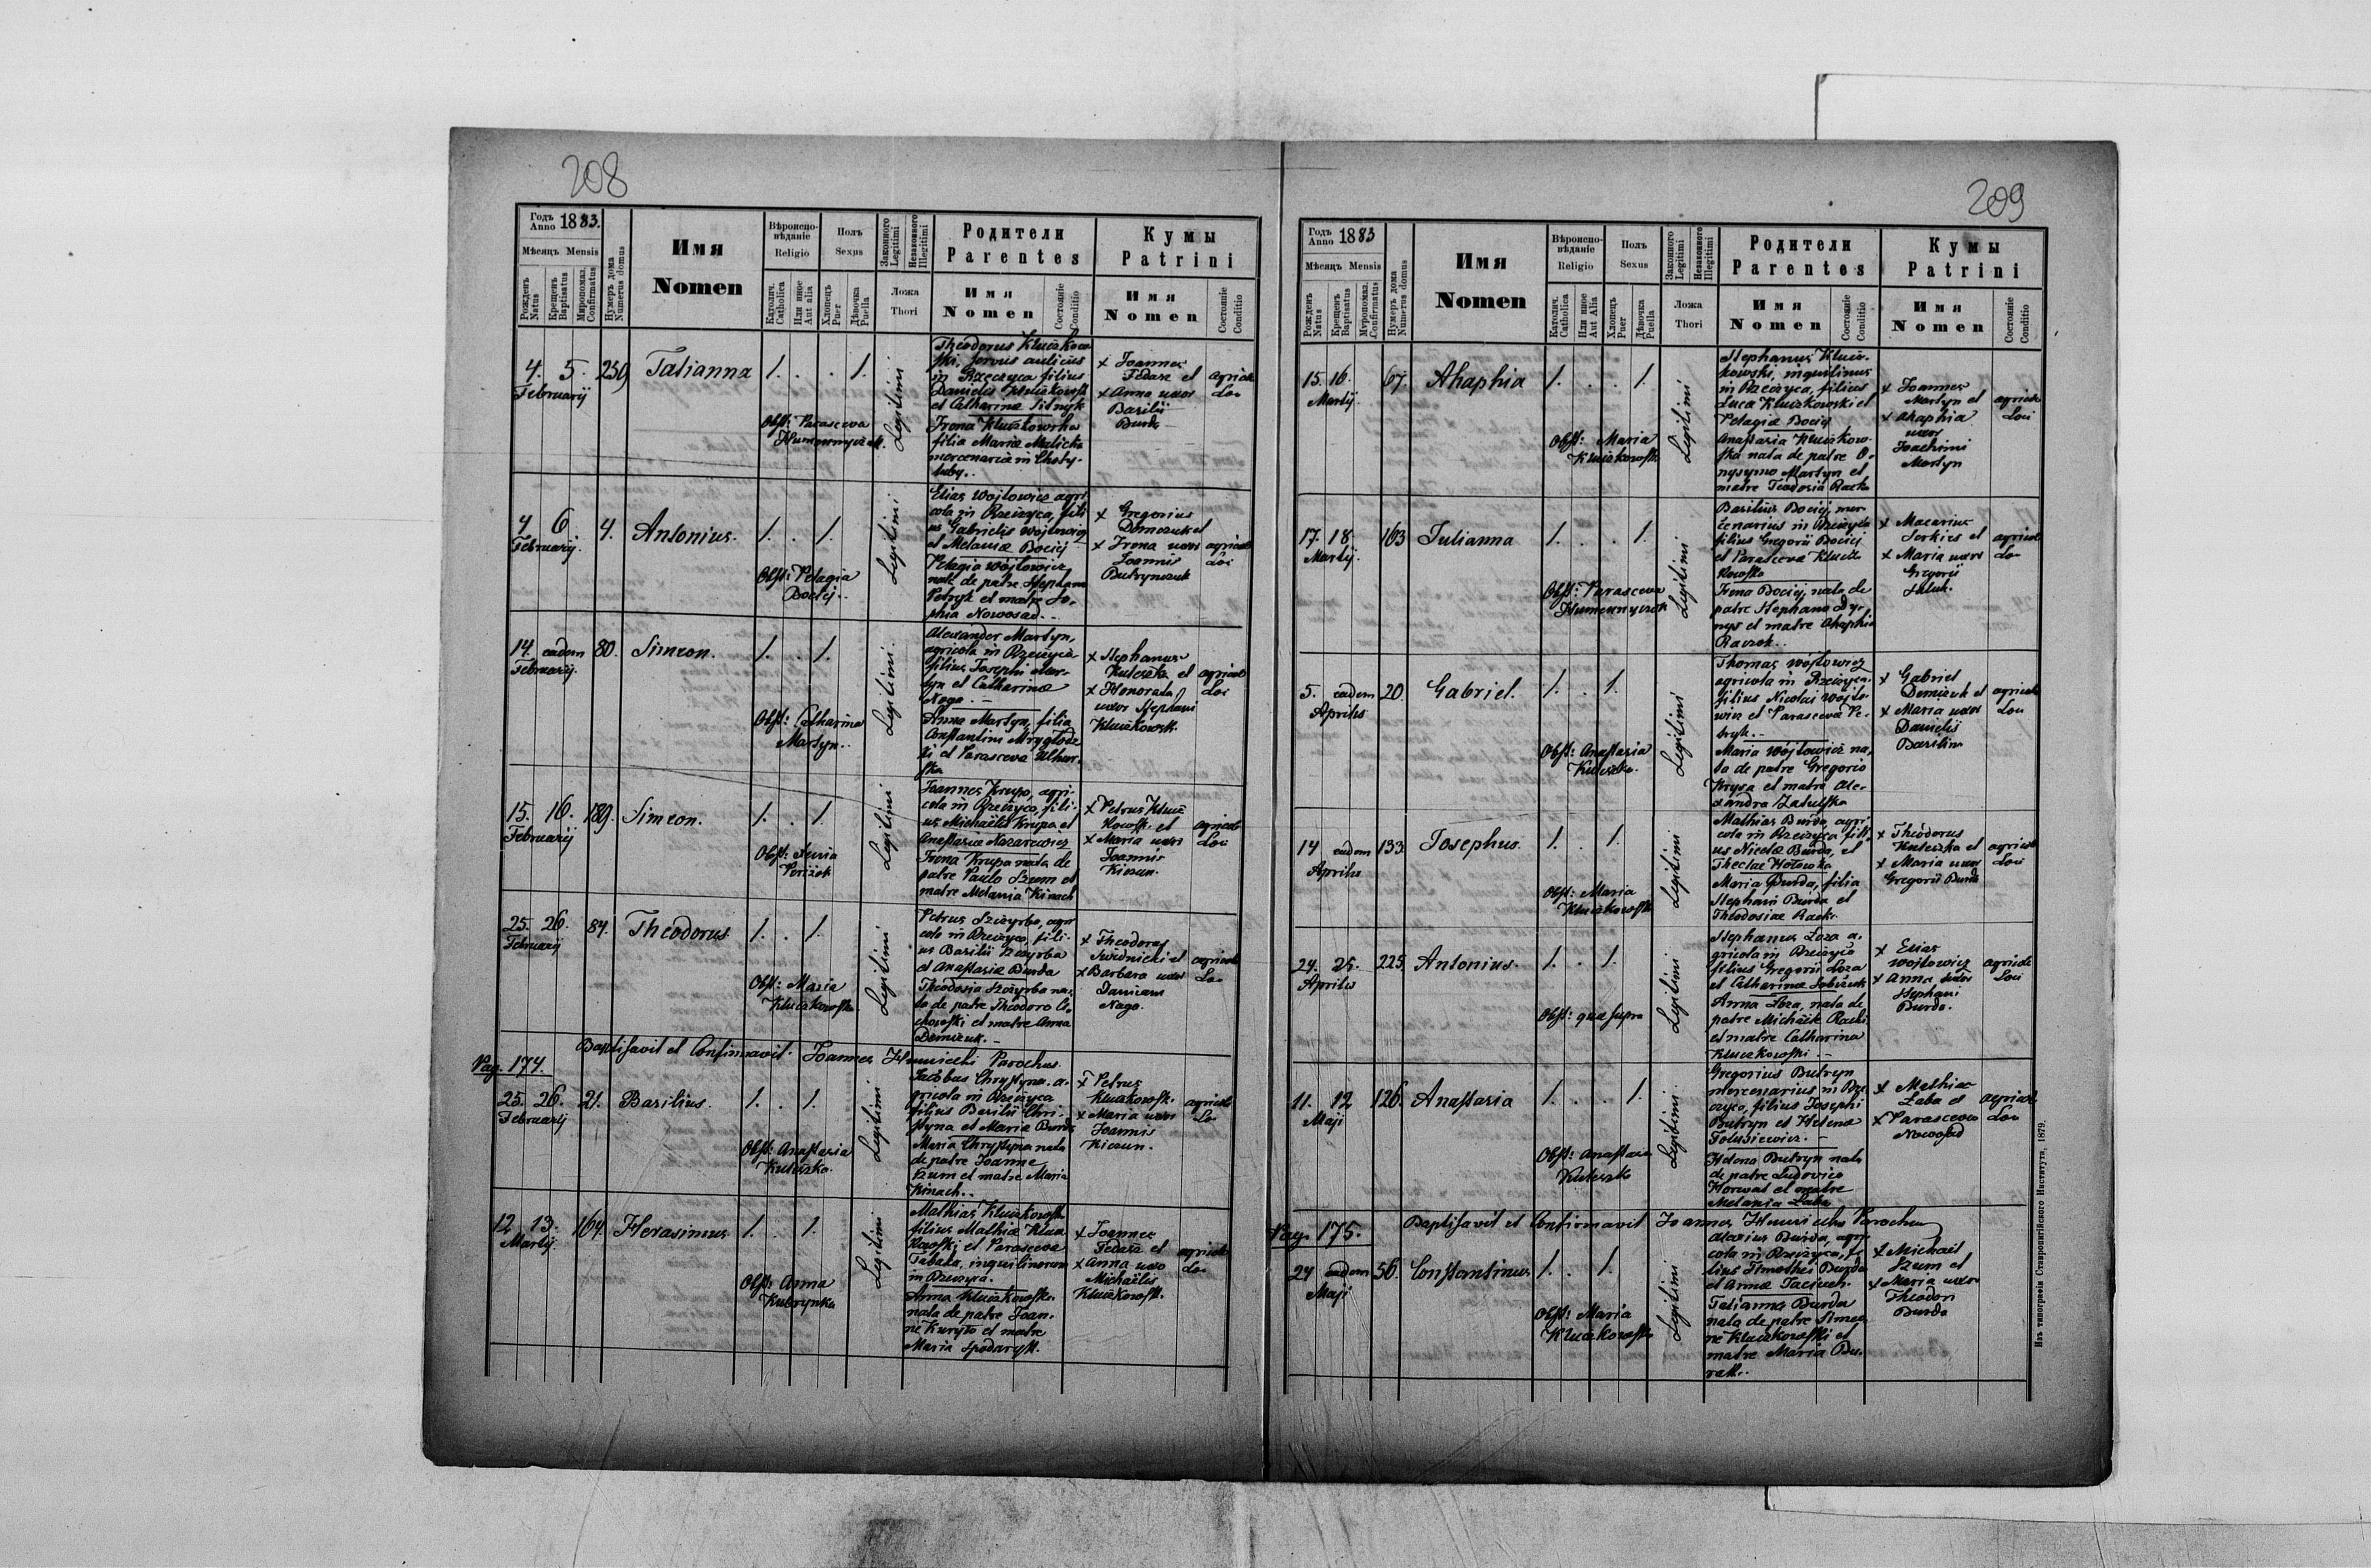 208
Годъ Anno 1883.
Мѣсяцъ Mensis
Рожденъ Natus
Крещенъ Baptisatus
Мѵропомаз. Confirmatus
Нумеръ дома Numerus domus
Имя
Nomen
Вѣроиспо-
вѣданіе
Religio
Католич. Catholica
Или иное Aut alia
Полъ
Sexus
Хлопецъ Puer
Дѣвочка Puella
Законного Legitimi
Незаконного Illegitimi
Ложа
Thori
Родители
Parentes
Имя
Nomen
Состояніе Conditio
Кумы
Patrini
Имя
Nomen
Состояніе Conditio
4. 5. 250 Tatianna 1. . . 1.
Februarij
Obst: Parasceva
Legitimi
Theodorus Kluczkow-
ski, servus aulicus
in Rzeczyca filius
Danielis Kluczkowsk
et Catharinæ Sitnyk
Irena Kluczkowska
filia Mariæ Malicka
mercenaria in Choty-
luby..
+ Joannes
Fedasz et
+ Anna uxor
Basilii
Burda
agricolæ
Loci
4 6 4. Antonius. 1. . 1.
Februarij.
Obst: Pelagia
Bociej..
Legitimi
Elias Wojtowicz agri-
cola in Rzeczyca, fili-
us Gabrielis Wojtowicz
et Melaniæ Bociej
Pelagia Wojtowicz
nata de patre Stephano
Petryk et matre So-
phia Nowosad..
+ Gregorius
Demczuk et
+ Irena uxor
Joannis
Butrynczuk
agricolæ
Loci
14. eadem 80. Simeon. 1. . 1.
Februarij.
Obst: Catharina
Martyn..
Legitimi
Alexander Martyn,
agricola in Rzeczyca
filius Josephi Mar-
tyn et Catharinæ
Naga.
Anna Martyn, filia
Constantini
et Parasceva
+ Stephanus
Kuleszka et
+ Honorata
uxor Stephani
Kluczkowsk.
agricolæ
Loci
15. 16. 189. Simeon. 1. . 1.
Februarij
Obst:
Legitimi
Joannes Krupa, agri-
cola in Rzeczyca, fili-
us Michaëlis Krupa et
Anastasiæ Nazarewicz
Irena Krupa nata de
patre Paulo Szum et
matre Melania Kinach
+ Petrus Klucz
kowski et
+ Maria uxor
Joannis
Kiczun.
agricolæ
Loci
25. 26. 84. Theodorus. 1. . 1.
Februarij
Obst: Maria
Kluczkowska
Legitimi
Petrus Szczyrba, agri
cola in Rzeczyca, fili-
us Basilii Szczyrba
et Anastasiæ Burda
Theodosia Szczyrba na-
ta de patre Theodoro
et matre Anna
Demczuk.
+ Theodorus
Swidnicki et
+ Barbara uxor
Damiani
Naga.
agricolæ
Loci
Baptisavit et Confirmavit Joannes Hunicki Parochus.
Pag. 174.
25. 26. 21. Basilius. 1. . 1.
Februarij
Obst: Anastasia
Kuleszka.
Legitimi
Jacobus Chrystyna, a-
gricola in Rzeczyca
filius Basilii Chri-
styna et Mariæ Burda
Maria Chrystyna nata
de patre Joanne
Szum et matre Maria
Kinach..
+ Petrus
Kluczkowsk.
+ Maria uxor
Joannis
Kiczun.
agricolæ
Loci
12. 13. 164. Herasimus 1. . 1.
Martij.
Obst: Anna
Legitimi
Mathias Kluczkowsk
filius Mathiæ Klucz
kowski et Parasceva
Tabala, inquilinorum
in Rzeczyca.
Anna Kluczkowska
nata de patre Joan-
ne Kuryło et matre
Maria
+ Joannes
Fedasz et
+ Anna uxor
Michaëlis
Kluczkowsk.
agricolæ
Loci
209
Годъ Anno 1883
Мѣсяцъ Mensis
Рожденъ Natus
Крещенъ Baptisatus
Мѵропомаз. Confirmatus
Нумеръ дома Numerus domus
Имя
Nomen
Вѣроиспо-
вѣданіе
Religio
Католич. Catholica
Или иное Aut Alia
Полъ
Sexus
Хлопецъ Puer
Дѣвочка Puella
Законного Legitimi
Незаконного Illegitimi
Ложа
Thori
Родители
Parentes
Имя
Nomen
Состояніе Conditio
Кумы
Patrini
Имя
Nomen
Состояніе Conditio
15. 16. 67. Ahaphia 1. . . 1.
Martij.
Obst: Maria
Kluczkowsk
Legitimi
Stephanus Klucz-
kowski, inquilinus
in Rzeczyca, filius
Lucæ Kluczkowski et
Pelagiæ Bociej
Anastasia Kluczkow-
ska nata de patre O-
nysymo Martyn et
matre Teodosia Racka
+ Joannes
Martyn et
+ Ahaphia
uxor
Joachimi
Martyn
agricolæ
Loci
17. 18. 163 Julianna 1. . . 1.
Martij.
Obst: Parasceva
Legitimi
Basilius Bociej, mer-
cenarius in Rzeczyca
filius Gregorii Bociej
et Parasceva Klucz
kowska
Irena Bociej, nata de
patre Stephano
et matre Ahaphia
Raczek..
+ Macarius
Serkies et
+ Maria uxor
Gregorii
agricolæ
Loci
5. eadem 20. Gabriel. 1. . 1.
Aprilis
Obst: Anastasia
Kuleszka.
Legitimi
Thomas Wojtowicz
agricola in Rzeczyca.
filius Nicolai Wojto-
wicz et Parasceva Pe-
tryk.
Maria Wojtowicz na-
ta de patre Gregorio
Krysa et matre Ale-
xandra Zatulska
+ Gabriel
Demczuk et
+ Maria uxor
Danielis
agricolæ
Loci
14 eadem 133 Josephus. 1. . 1.
Aprilis
Obst: Maria
Kluczkowsk
Legitimi
Mathias Burda, agri
cola in Rzeczyca fili-
us Nicolæ Burda, et
Theclæ Hołowka
Maria Burda, filia
Stephani Burda et
Theodosiæ Racka.
+ Theodorus
Kuleszka et
+ Maria uxor
Gregorii Burda
agricolæ
Loci
24. 25. 225. Antonius. 1. . 1.
Aprilis
Obst: quæ supra
Legitimi
Stephanus Łoza a-
gricola in Rzeczyca
filius Gregorii Łoza
et Catharinæ Sobczuk
Anna Łoza, nata de
patre Michaële Racki
et matre Catharina
Kluczkowski
+ Elias
Wojtowicz
+ Anna uxor
Stephani
Burda.
agricolæ
Loci
11. 12 126. Anastasia 1. . . 1.
Maji
Obst: Anastasia
Kuleszka
Legitimi
Gregorius Butryn
mercenarius in Rze-
czyca, filius Josephi
Butryn et Helenæ
Helena Butryn nata
de patre Ludovico
Horwat et matre
Melania Łaba
+ Mathias
Łaba et
+ Parasceva
Nowosad
agricolæ
Loci
Baptisavit et Confirmavit Joannes Hunicki Parochus
Pag. 175.
24 eadem 56. Constantinus 1. . 1.
Maji
Obst: Maria
Kluczkowska
Legitimi
Alexius Burda, agri-
cola in Rzeczyca, fi-
lius Timothei Burda
et Annæ
Tatianna Burda
nata de patre Simeo-
ne Kluczkowski et
matre Maria Bu-
rak..
+ Michaël
Szum et
+ Maria uxor
Theodori
Burda
Изъ типографіи Ставропигійского Института, 1879.